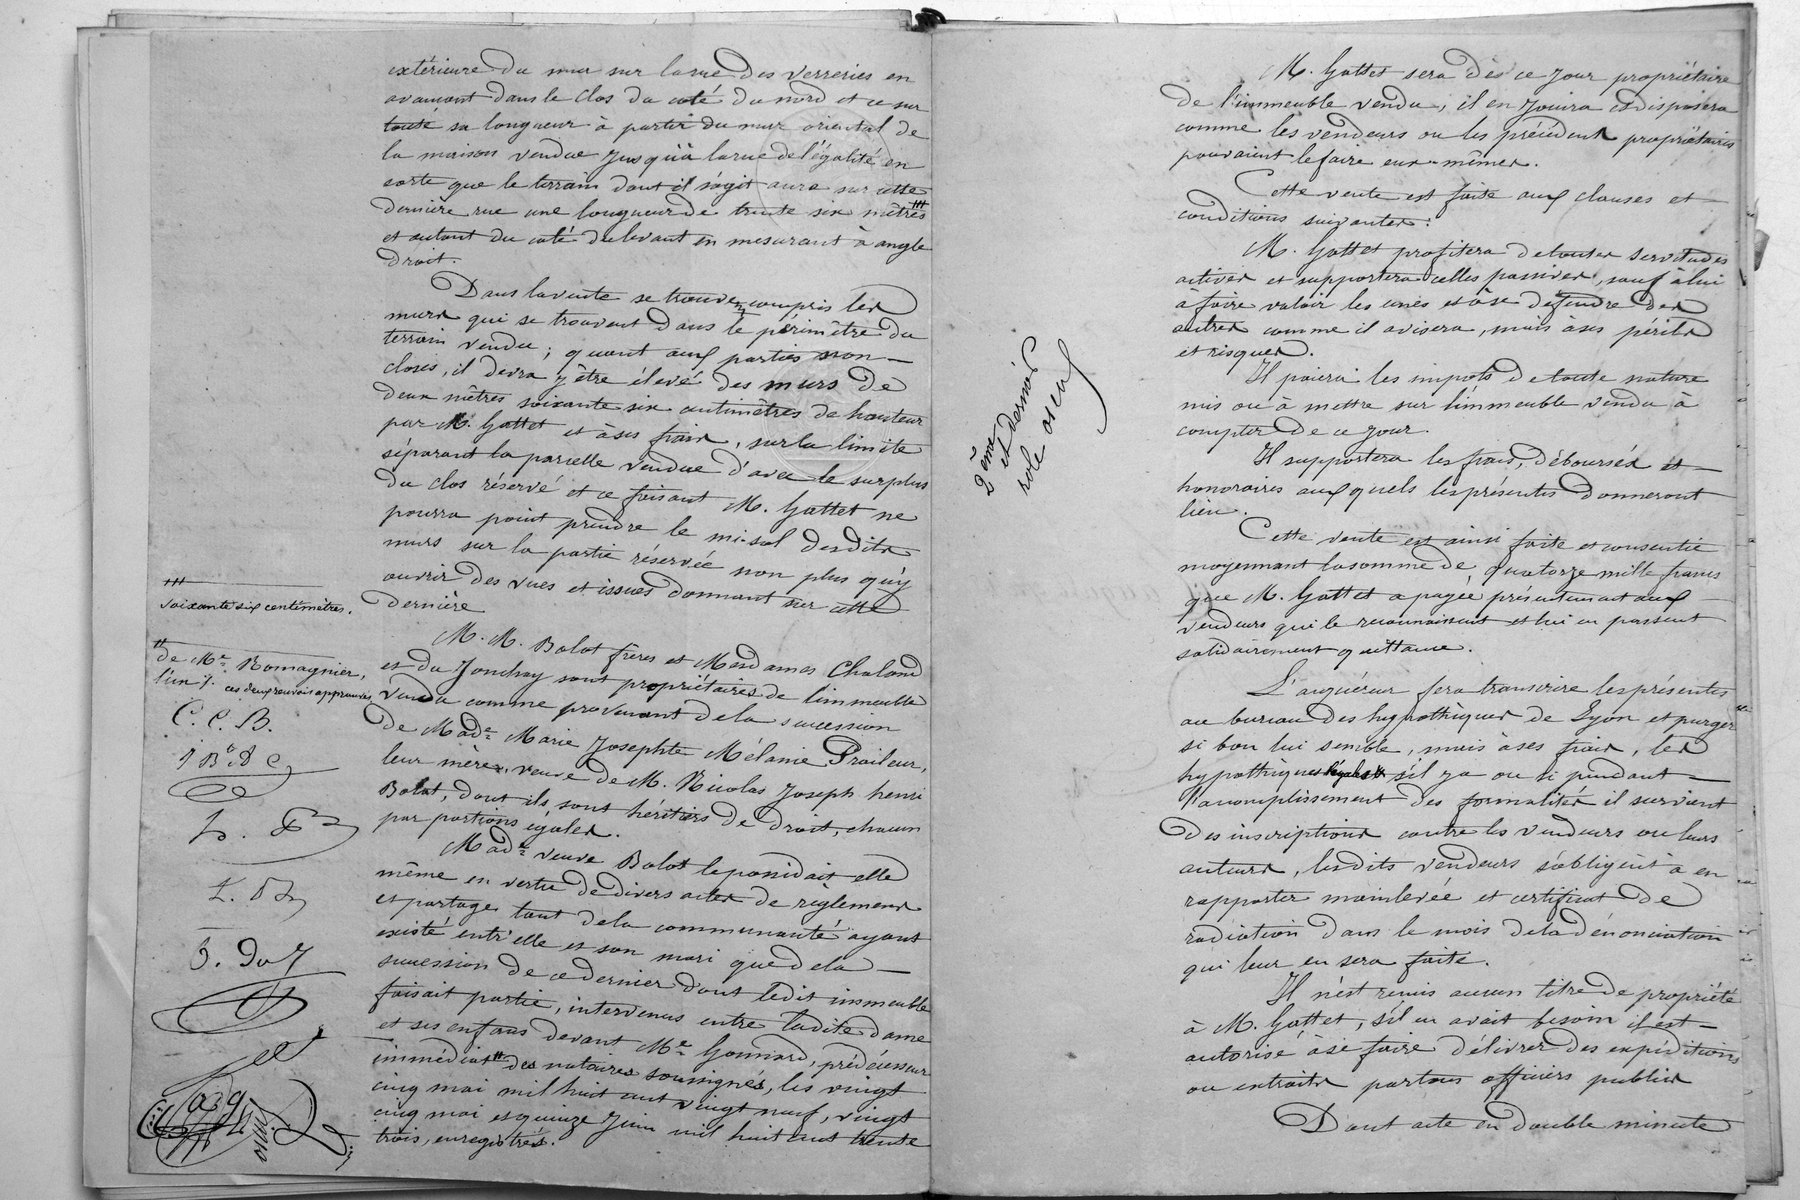 extérieure du mur sur la rue des Verreries en
avançant dans le clos du coté du nord et ce sur
toute sa longueur à partir du mur oriental de
la maison vendue jusqu'à la rue de l'égalité en
sorte que le terrain dont il s'agit aura sur cette
dernière rue une longueur de trente six mètres
et autant du coté du levant en mesurant à angle
droit.
Dans la vente se trouvent compris les
murs qui se trouvent dans le périmètre du
terrain vendu; quant aux parties non
closes, il devra y être élevé des murs de
deux mètres soixante six centimètres de hauteur
par M. Gattet et à ses frais, sur la limite
séparant la parcelle vendue d'avec le surplus
du clos réservé et ce faisant M. Gattet ne
pourra point prendre le mi-sol desdits
murs sur la partie réservée non plus qu'y
ouvrir des vues et issues donnant sur cette
dernière
M. M. Bolot frères et Mesdames Chaland
et du Jonchay sont propriétaires de l'immeuble
vendu comme provenant de la succession
de Made Marie Josephte Mélanie Praileur,
leur mère, veuve de M. Nicolas Joseph henri
Bolot, dont ils sont héritiers de droit, chacun
par portions égales.
Made veuve Bolot le possédait elle
même en vertu de divers actes de règlement
et partage tant de la communauté ayant
existé entr'elle et son mari que de la
succession de ce dernier dont ledit immeuble
faisait partie, intervenus entre ladite dame
et ses enfans devant Me Gonnard, prédécesseur
immédiat des notaires soussignés, les vingt
cinq mai mil huit cent vingt neuf, vingt
cinq mai et quinze Juin mil huit cent trente
trois, enregistrés.
soixante six centimètres.
de Me Romagnier,
l'un /. ces deux renvois approuvés
C. C. B.
2ème
et dernier
role
M. Gattet sera dès ce jour propriétaire
de l'immeuble vendu; il en jouira et disposera
comme les vendeurs ou les précédents propriétaires
pouvaient le faire eux-mêmes.
Cette vente est faite aux clauses et
conditions suivantes:
M. Gattet profitera de toutes servitudes
actives et supportera celles passives, sauf à lui
à faire valoir les unes et à se defendre des
autres comme il avisera, mais à ses périls
et risques.
Il paiera les impots de toute nature
mis ou à mettre sur l'immeuble vendu à
compter de ce jour.
Il supportera les frais, déboursés et
honoraires auxquels les présentes donneront
lieu.
Cette vente est ainsi faite et consentie
moyennant la somme de quatorze mille francs
que M. Gattet a payée présentement aux
vendeurs qui le reconnaissent et lui en passent
solidairement quittance.
L'acquéreur fera transcrire les présentes
au bureau des hypothèques de Lyon et purger
si bon lui semble, mais à ses frais, les
hypothèques légales s'il y a ou si pendant
l'accomplissement des formalités il survient
des inscriptions contre les vendeurs ou leurs
auteurs, lesdits vendeurs s'obligent à en
rapporter mainlevée et certificat de
radiation dans le mois de la dénonciation
qui leur en sera faite.
Il n'est remis aucun titre de propriété
à M. Gattet, s'il en avait besoin il est
autorisé à se faire délivrer des expéditions
ou extraits par tous officiers publics
Dont acte en double minute